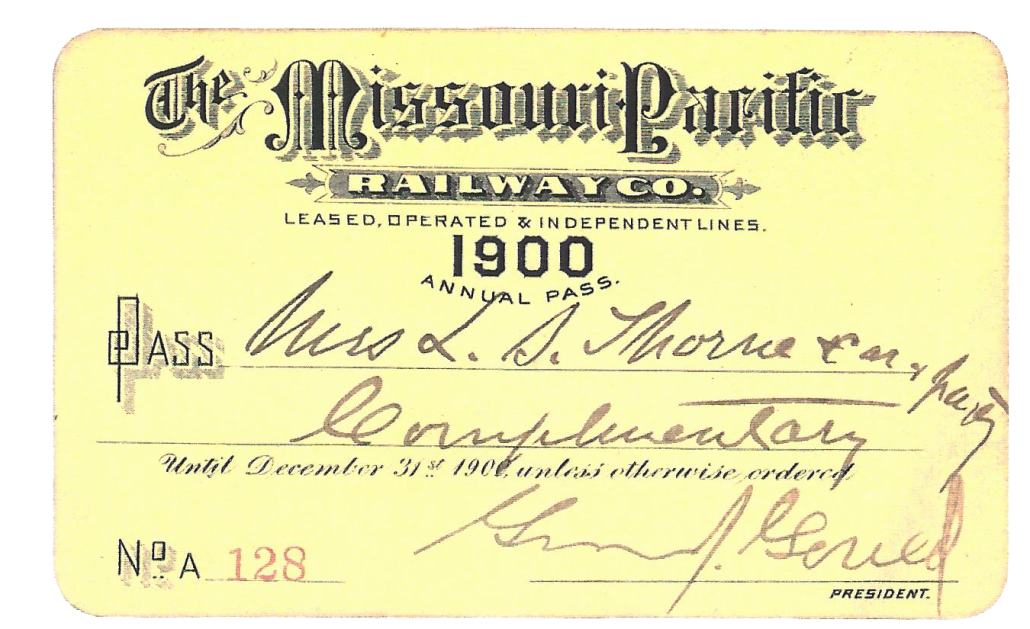 The Missouri Pacific
RAILWAY CO.
LEASED, OPERATED & INDEPENDENT LINES.
1900
ANNUAL PASS.
PASS Mrs L. S. Thorne & party
Complimentary
Until December 31st 1900, unless otherwise ordered
No. A 128
Geo. J. Gould
PRESIDENT.